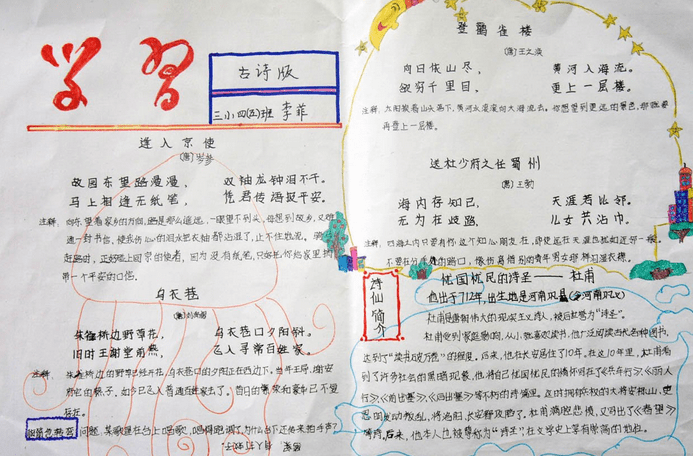 学习
古诗版
三小四(五)班 李菲
逢入京使
(唐)岑参
故园东望路漫漫， 双袖龙钟泪不干。
马上相逢无纸笔， 凭君传语报平安。
注释：向东望着家乡的方向，路是那么遥远，一眼望不到头，每想到故乡，又难
逢一封书信，使我伤心的泪水把衣袖都沾湿了，止不住地流。
赶路时，正好碰上回京的使者，因为没有纸笔，只好把你给家里捎
带一个平安的口信。
乌衣巷
(唐)刘禹锡
朱雀桥边野草花， 乌衣巷口夕阳斜。
旧时王谢堂前燕， 飞入寻常百姓家。
注释：朱雀桥边的野草已经开花，乌衣巷口的夕阳正在西边下。当年王导、谢安
如今已飞入普通百姓家去了。昔日的繁荣和豪华已不复
存在。
问题：某歌星在台上唱歌，唱得跑调了，为什么台下还传来拍手声？
登鹳雀楼
(唐)王之涣
向日依山尽， 黄河入海流。
欲穷千里目， 更上一层楼。
注释：太阳挨着山头落下，黄河水滚滚向大海流去。你想望到更远的景色，那就要
再登上一层楼。
送杜少府之任蜀州
(唐)王勃
海内存知己， 天涯若比邻。
无为在歧路， 儿女共沾巾。
注释：四海之内只要有你这个知心朋友在，即使远在天涯也犹如近邻一般。
不要在分手的路口，像伤离惜别的青年男女那样泪湿衣襟。
诗仙简介
忧国忧民的诗圣——杜甫
他出于712年，出生地是河南巩县(今河南巩义)
杜甫是唐朝伟大的现实主义诗人，被后红誉为“诗圣”。
杜甫受到家庭影响，从小就喜欢读书，他广泛阅读各种图书，
达到了“读书破万卷”的程度。后来，他在长安居住了10年。在这10年里，杜甫看
到了许多社会的黑暗现象，他将自己忧国忧民的情怀写在了《兵车行》《丽人
行》《前出塞》《后出塞》等不朽的诗篇里。
动叛乱，将洛阳、长安都攻陷了。杜甫满腔悲愤，又写出了《春望》
等诗。后来，他本人也被尊称为“诗圣”，在文学史上享有崇高的地位。